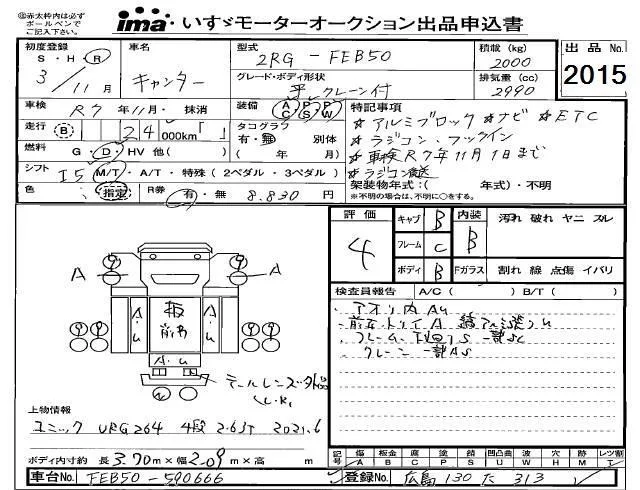 ⑱赤太枠内は必ず
ボールペンで
ご記入下さい。
ima いすゞモーターオークション出品申込書
初度登録 車名 型式 2RG-FEB50 積載(kg) 2000 出品No. 2015
S・H・R 3/11月 キャンター グレード・ボディ形状 平 クレーン付 排気量(cc) 2990
車検 R7年11月・抹消 装備 AC PS PW 特記事項
☆アルミブロック ☆ナビ ☆ETC
走行 (B) 24 000km「 」 タコグラフ 有・無 別体 ( 年 月)
☆ラジコン、フックイン
燃料 G・D・HV 他( )
☆車検R7年11月1日まで
シフト I5 M/T・A/T・特殊(2ペダル・3ペダル)
☆ラジコン
色 (指定) R券 有・無 8.830円
架装物年式:( 年式)・不明
※不明の場合は、不明に○をする。
評価 4 キャブ B 内装 B 汚れ 破れ ヤニ スレ
フレーム C
ボディ B Fガラス 割れ 線 点傷 イバリ
検査員報告 A/C( ) B/T( )
アオリ内AU
フレーム 下回り S 一部SC
クレーン 一部AS
A A
板
A・U A・U
A・U
テールレンズ
L.R,
上物情報
ユニック URG264 4段 2.63T 2021.6
ボディ内寸約 長 3.70m×幅 2.09m×高 m
記号 傷 A 板金 B 腐 C 塗 P 錆 S 凹凸曲 U 波 W 穴 H 欠 X レツ割 T
車台No. FEB50-590666 登録No. 広島 130 た 313